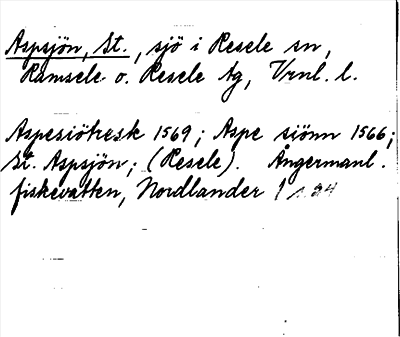 Aspsjön, St., sjö i Resele sn,
Ramsele o. Resele tg, Vrnl. l.
Aspesiötresk 1569; Aspe siönn 1566;
St. Aspsjön; (Resele). Ångermanl.
fiskevatten, Nordlander